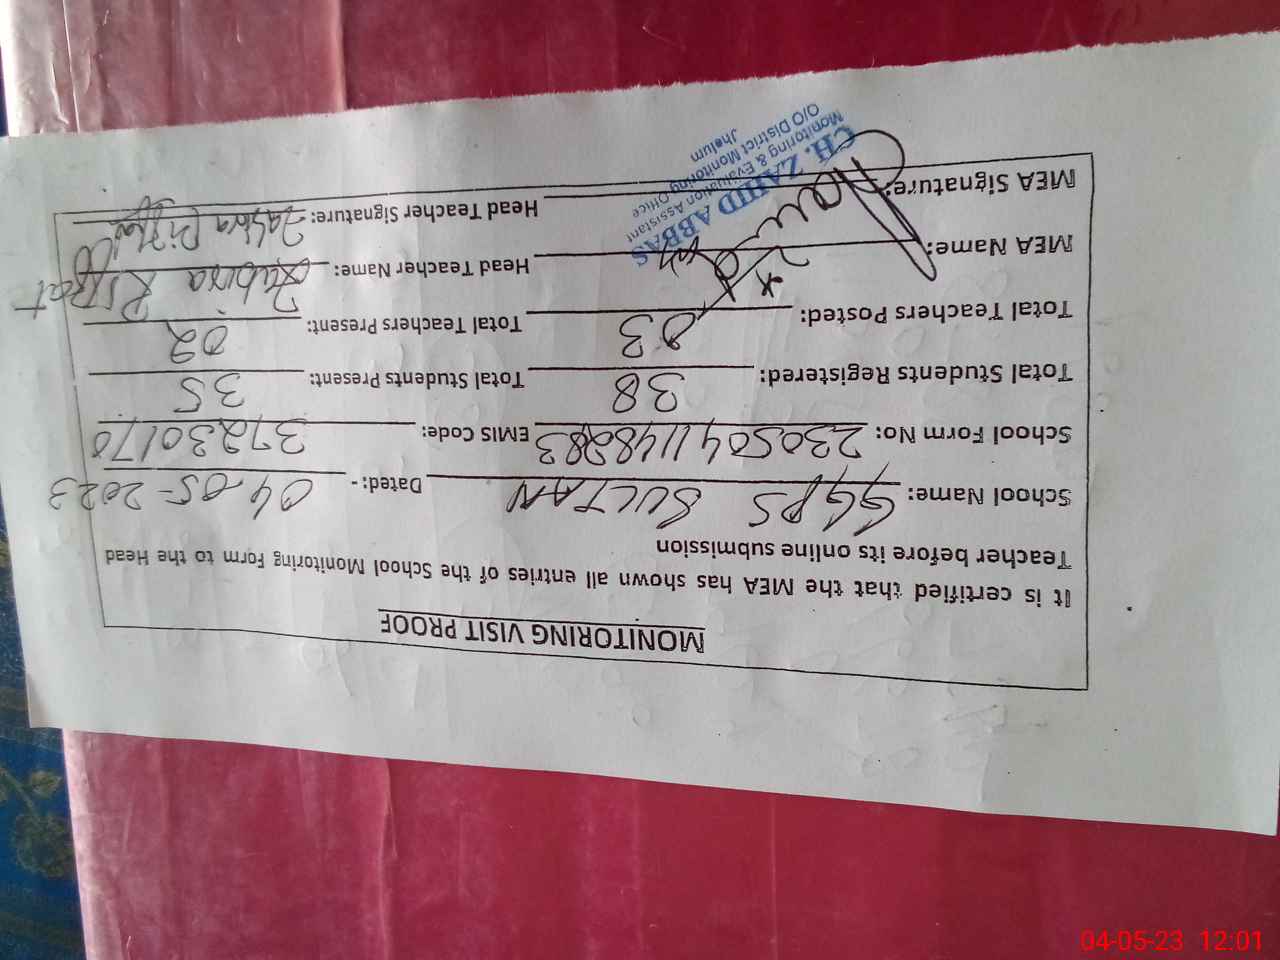 MONITORING VISIT PROOF
It is certified that the MEA has shown all entries of the School Monitoring Form to the Head
Teacher before its online submission
School Name: GGPS SULTAN Dated:- 04-05-2023
School Form No: EMIS Code: 37230170
Total Students Registered: 38 Total Students Present: 35
Total Teachers Posted: 03 Total Teachers Present: 02
MEA Name: Head Teacher Name:
MEA Signature: Head Teacher Signature:
CH. ZAHID ABBAS
Monitoring & Evaluation Assistant
O/O District Monitoring Office
Jhelum
04-05-23 12:01